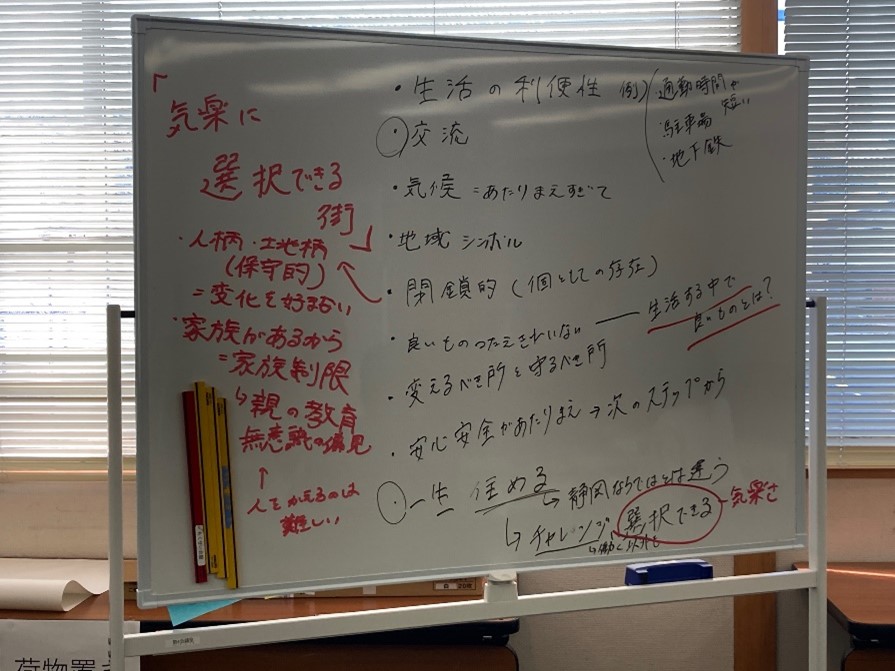 「気楽に
選択できる
街」
・人柄・土地柄
(保守的)
=変化を好まない
・家族があるから
=家族制限
↳親の教育
無意識の偏見
↑
人をかえるのは
難しい
・生活の利便性 例)
通勤時間が
短い
駐車場
・地下鉄
・交流
・気候=あたりまえすぎて
・地域シンボル
・閉鎖的(個としての存在)
・良いものつたえきれいない ― 生活する中で
良いものとは?
・変えるべき所と守るべき所
・安心安全があたりまえ⇒次のステップから
・一生住める↳静岡ならではとは違う
↳チャレンジ 選択できる-気楽さ
↳働く以外も
荷物置き